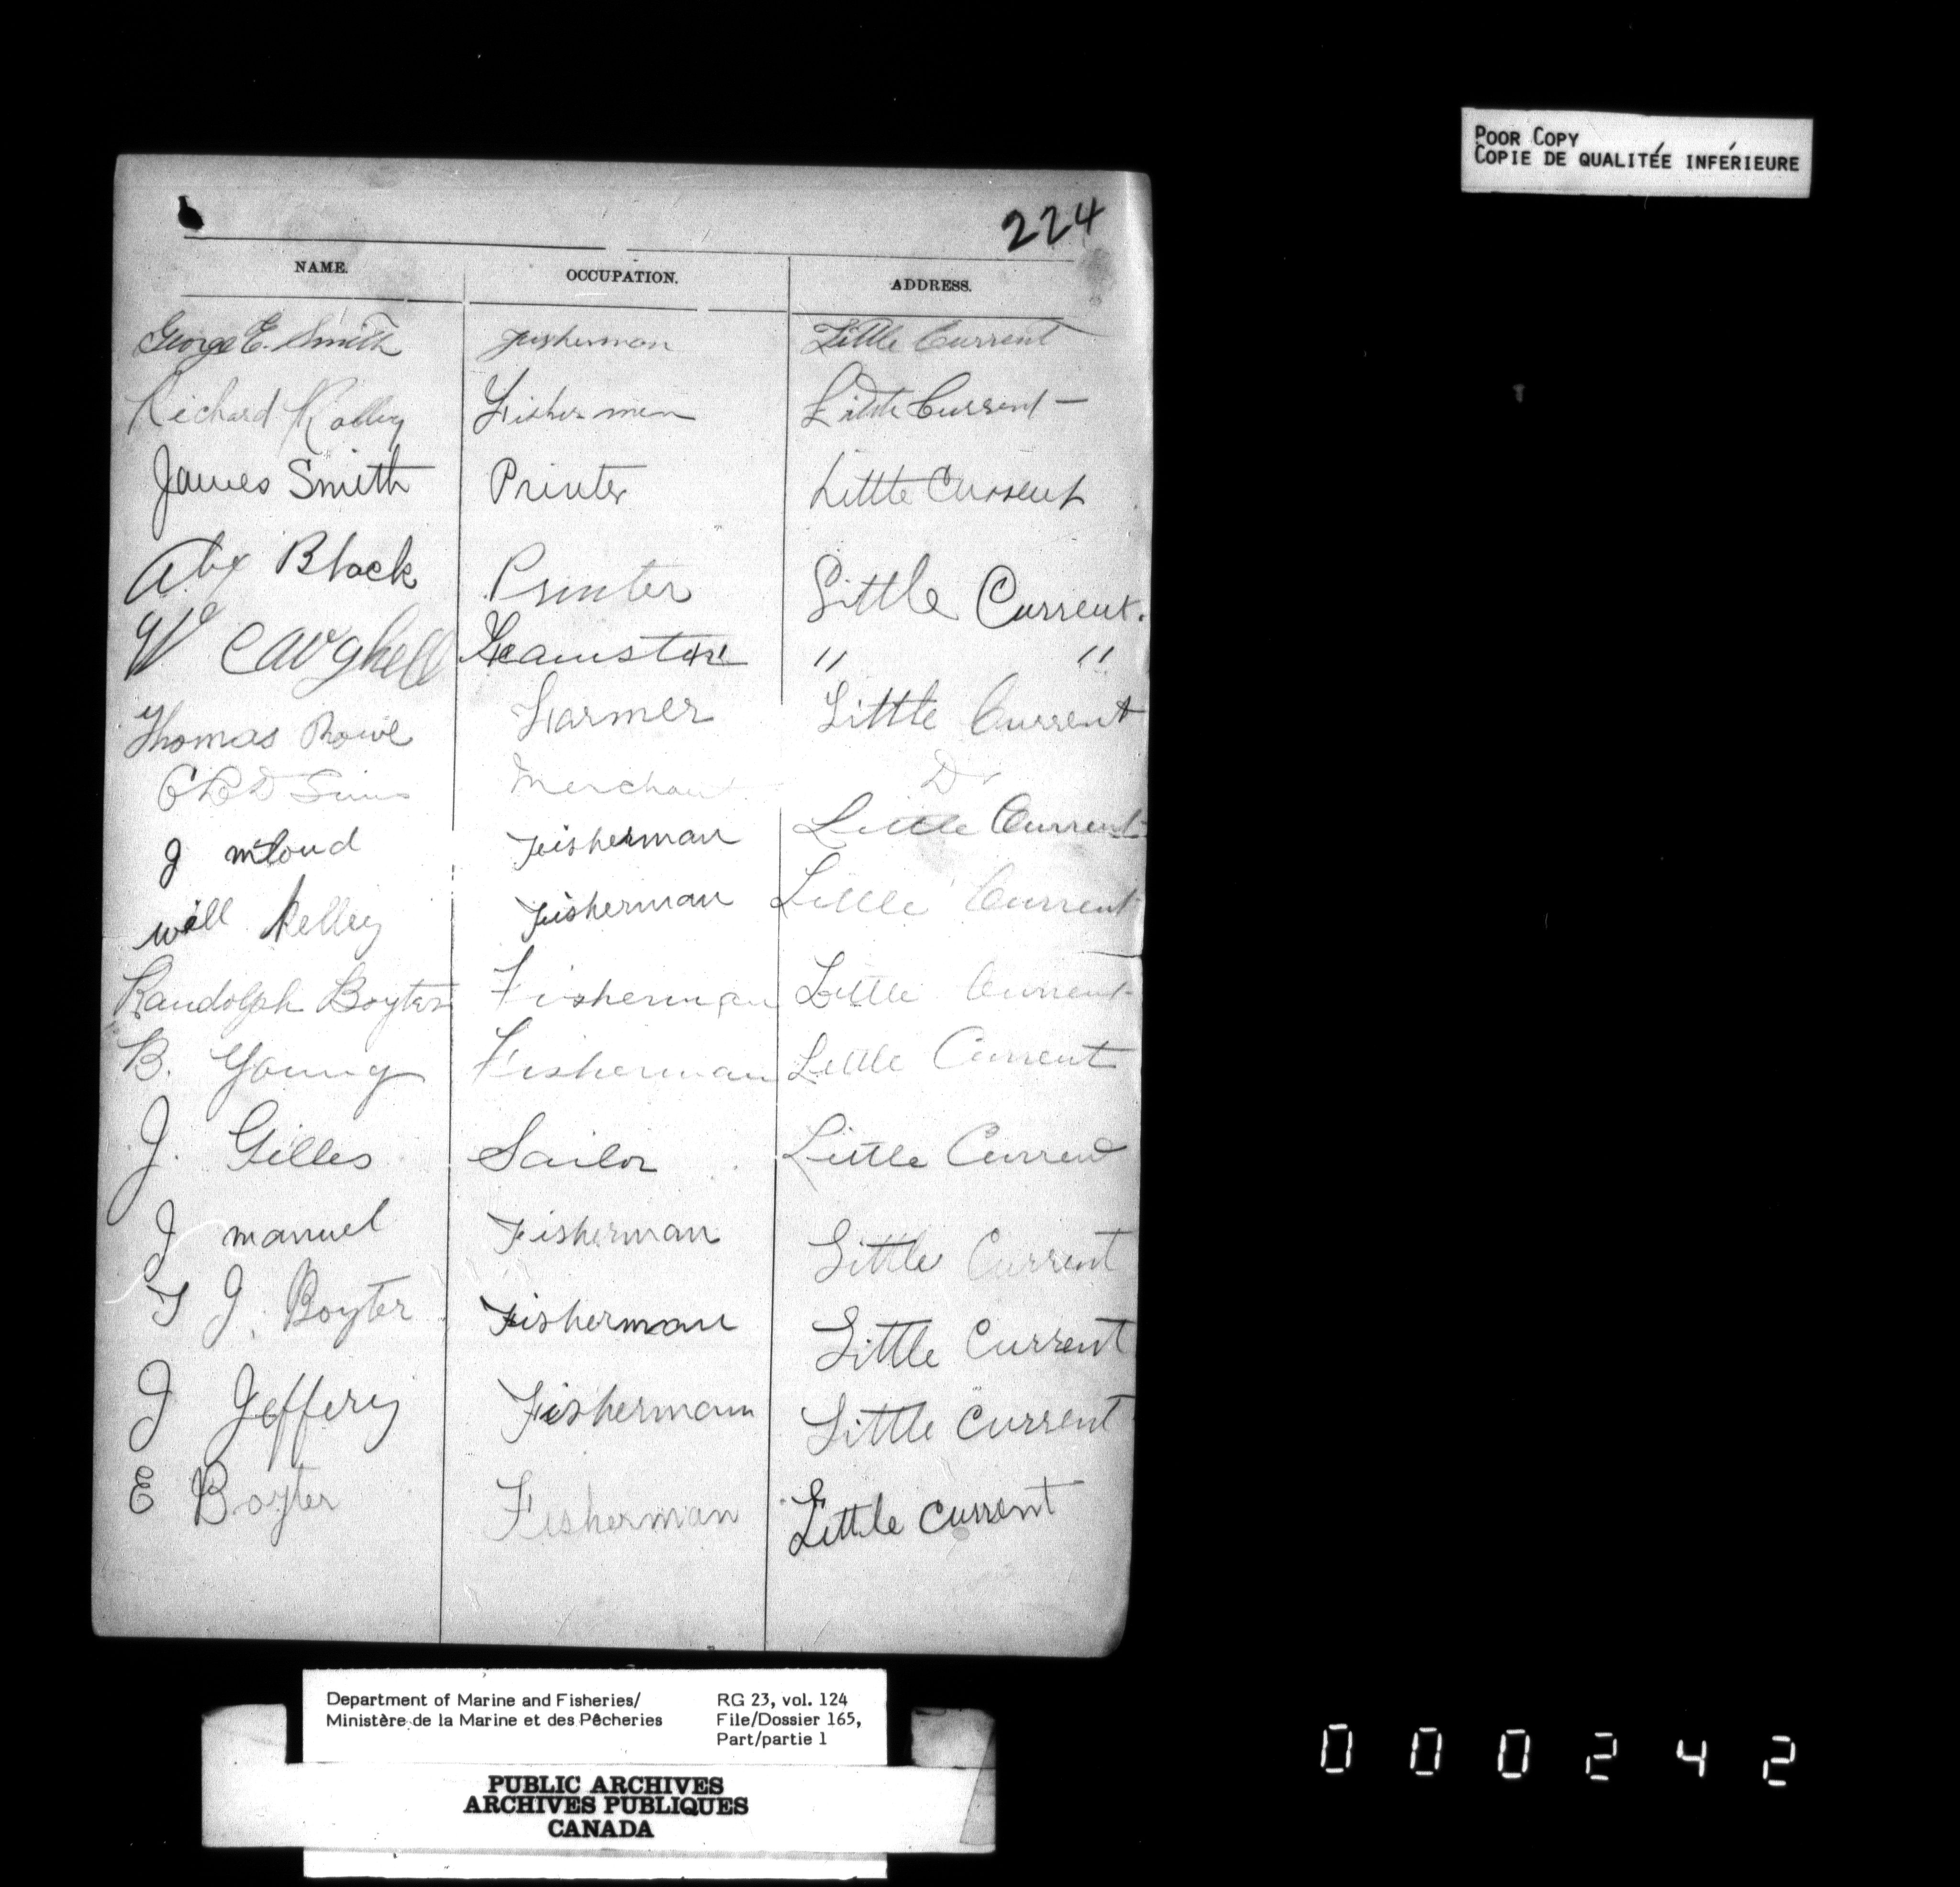 POOR COPY
COPIE DE QUALITÉE INFÉRIEURE
224
NAME. OCCUPATION. ADDRESS.
George E. Smith Fisherman Little Current
Richard Fishermen Little Current —
James Smith Printer Little Current
Alex Black Printer Little Current.
W Caughell Teamster " "
Thomas Rowe Farmer Little Current
Sims Merchant Do
J Fisherman Little Current
Will Kelley Fisherman Little Current
Randolph Boyter Fisherman Little Current
B. Young Fisherman Little Current
J. Gilles Sailor Little Current
J manuel Fisherman Little Current
T J. Boyter Fisherman Little Current
J Jeffery Fisherman Little Current
E Boyter Fisherman Little Current
Department of Marine and Fisheries/ RG 23, vol. 124
Ministère de la Marine et des Pêcheries File/Dossier 165,
Part/partie 1
PUBLIC ARCHIVES
ARCHIVES PUBLIQUES
CANADA
000242